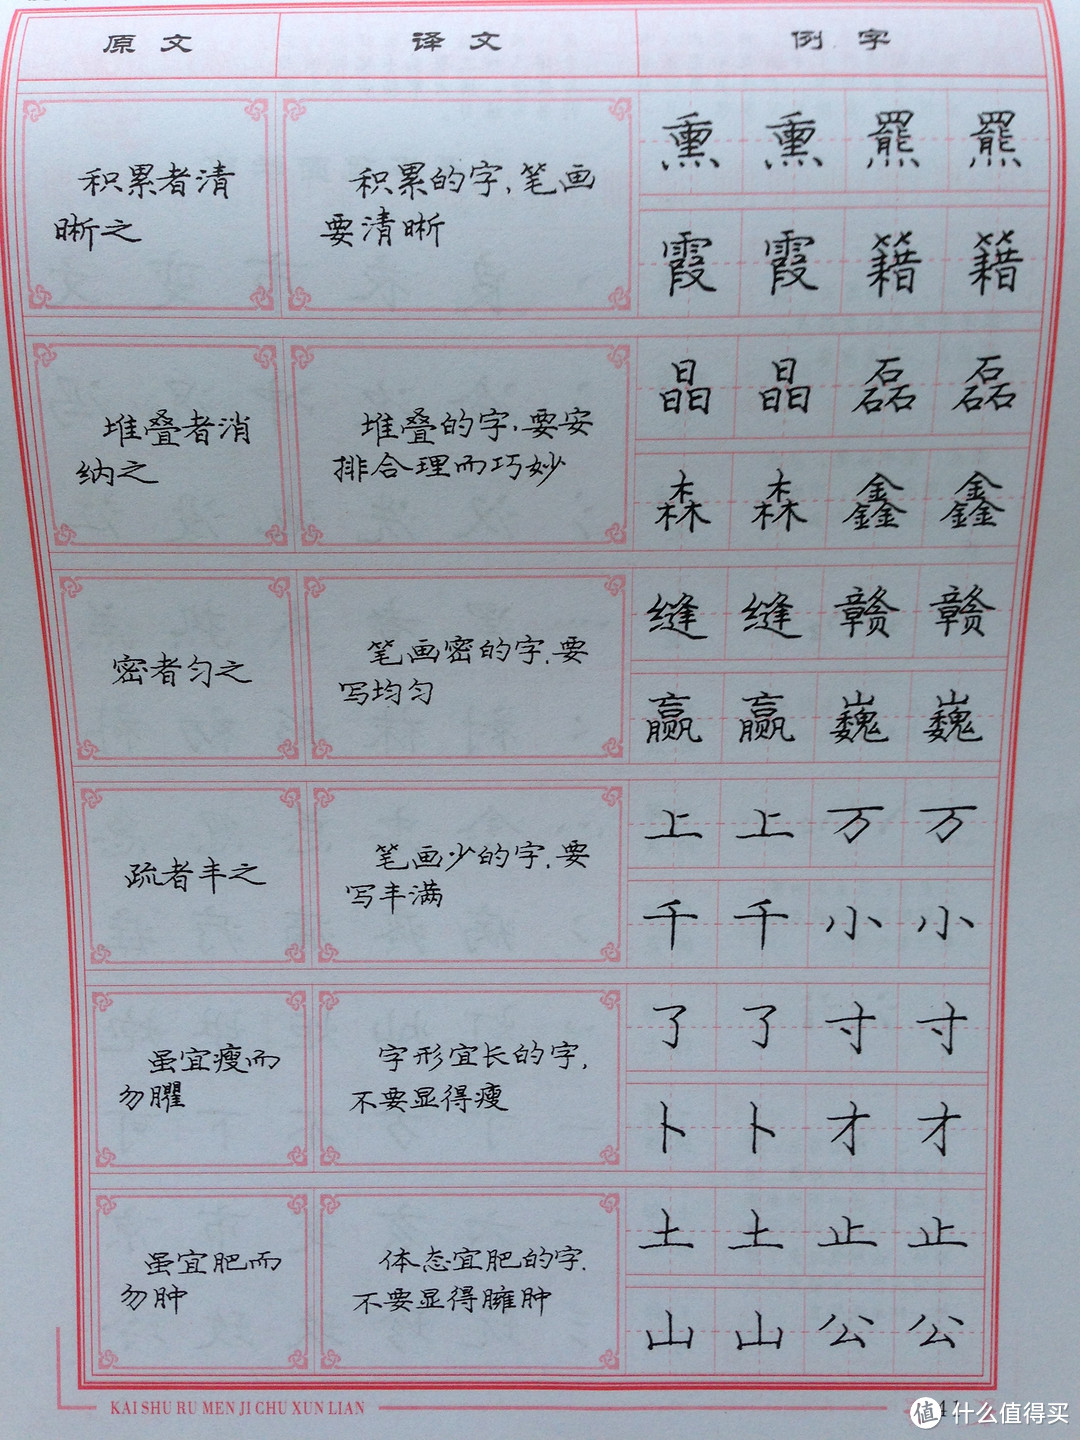 原文 译文 例字
积累者清
晰之
积累的字,笔画
要清晰
熏 熏 罴 罴
霞 霞 籍 籍
堆叠者消
纳之
堆叠的字,要安
排合理而巧妙
晶 晶 磊 磊
森 森 鑫 鑫
密者匀之
笔画密的字,要
写均匀
缝 缝 赣 赣
赢 赢 巍 巍
疏者丰之
笔画少的字,要
写丰满
上 上 万 万
千 千 小 小
虽宜瘦而
勿臞
字形宜长的字,
不要显得瘦
了 了 寸 寸
卜 卜 才 才
虽宜肥而
勿肿
体态宜肥的字,
不要显得臃肿
土 土 止 止
山 山 公 公
KAI SHU RU MEN JI CHU XUN LIAN
值 什么值得买